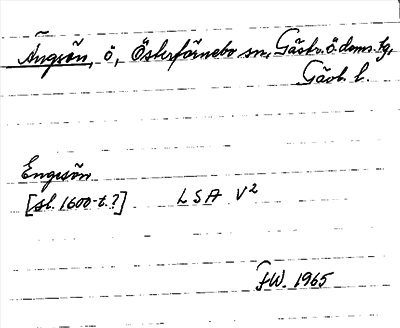 Ängsön, ö, Österfärnebo sn, Gästr. ö. doms. tg,
Gävl. l.
Engsön
[sl. 1600-t.?] LSA V²
FW. 1965